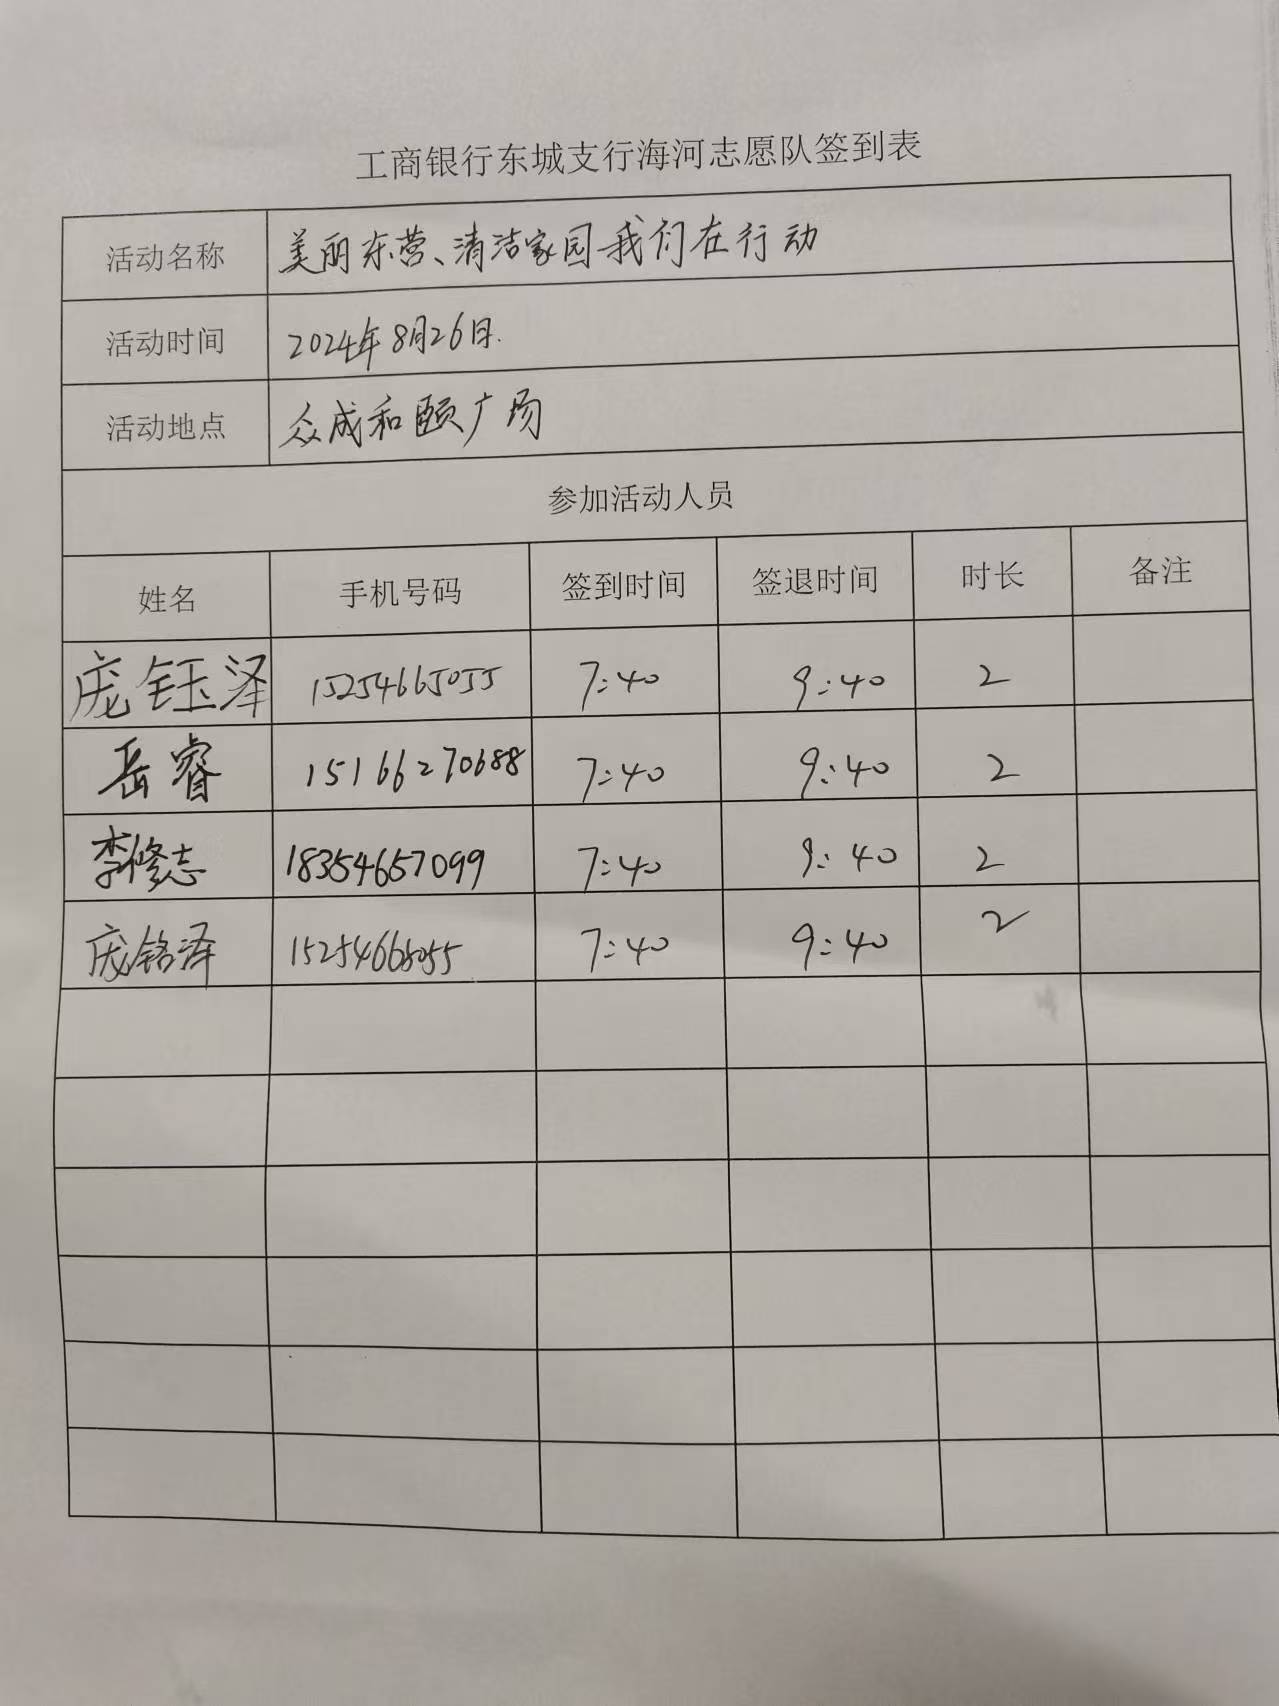 工商银行东城支行海河志愿队签到表
活动名称 美丽东营、清洁家园我们在行动
活动时间 2024年8月26日.
活动地点 众成和颐广场
参加活动人员
姓名 手机号码 签到时间 签退时间 时长 备注
庞钰泽 15254665055 7:40 9:40 2
岳睿 15166270688 7:40 9:40 2
李修志 18354657099 7:40 9:40 2
庞铭泽 15254665055 7:40 9:40 2